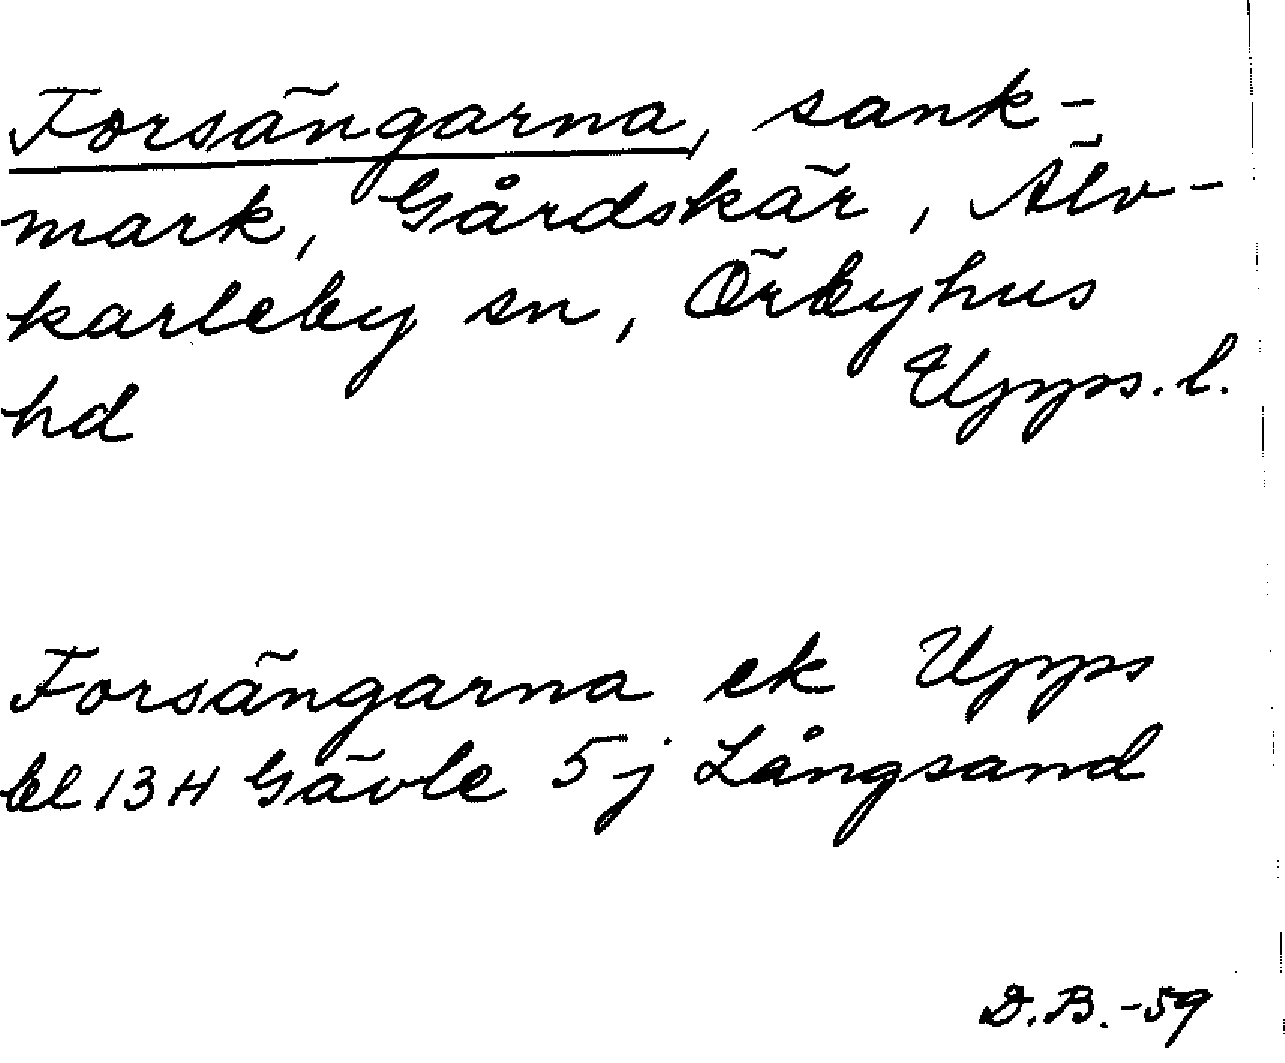 Forsängarna, sank-
mark, Gårdskär, Älv-
karleby sn, Örbyhus
hd Upps. l.
Forsängarna ek Upps
bl 13 H Gävle 5 j Långsand
D.B. -59